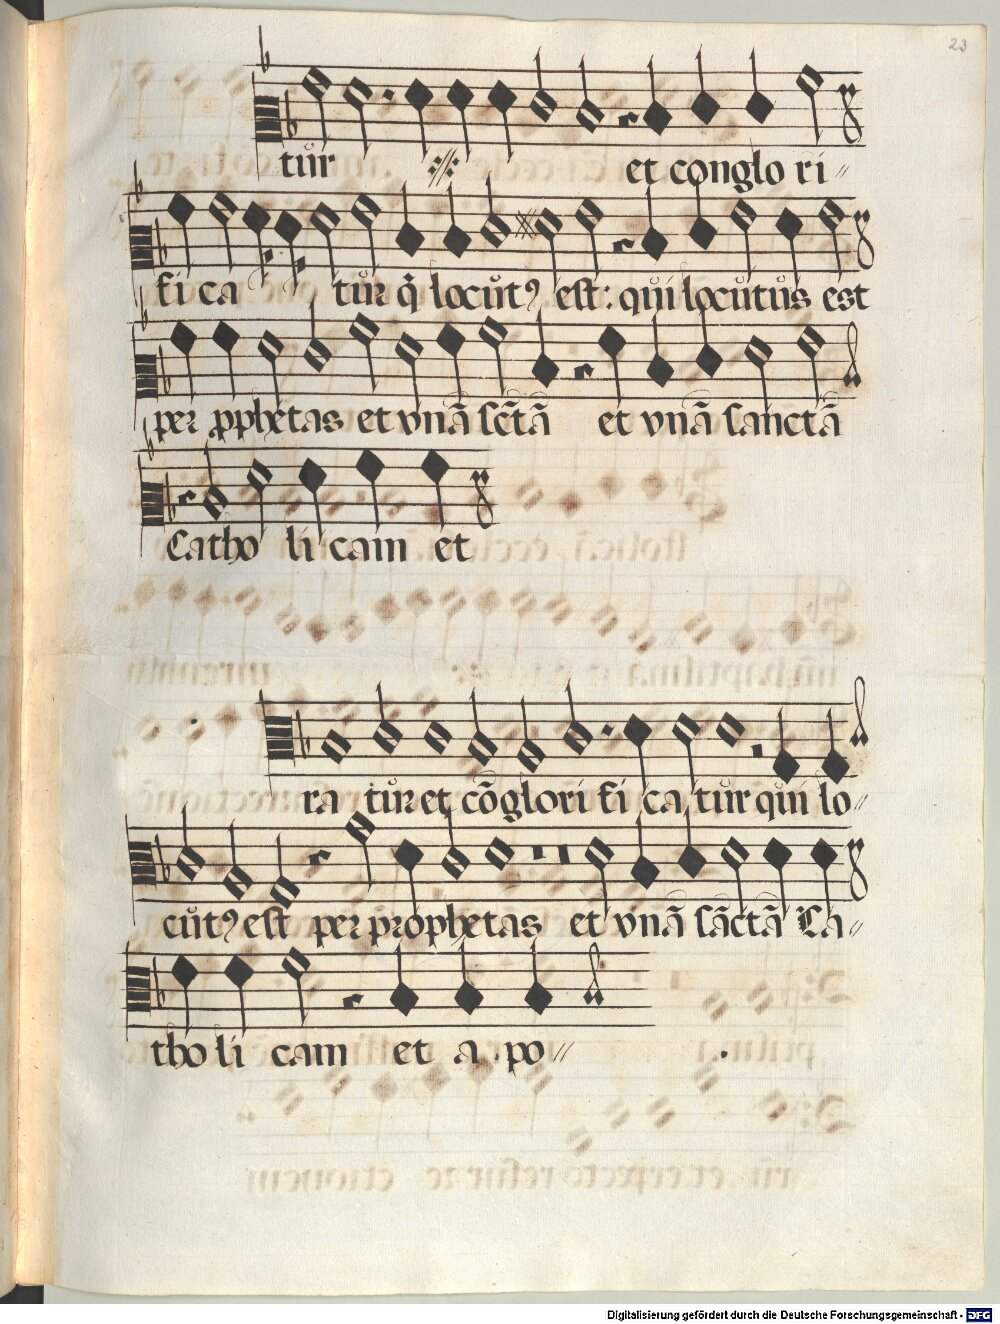 23
tur et conglo ri〃
fi ca tur q̄ locutꝰ est: qui locutus est
per ꝓphetas et vnā sc̄tā et vnā sanctā
Catho li cam et
ra tur et cōglori fi ca tur qui lo〃
cutꝰ est per prophetas et vnā sāctā Ca〃
tho li cam et a. po〃
Digitalisierung gefördert durch die Deutsche Forschungsgemeinschaft - DFG